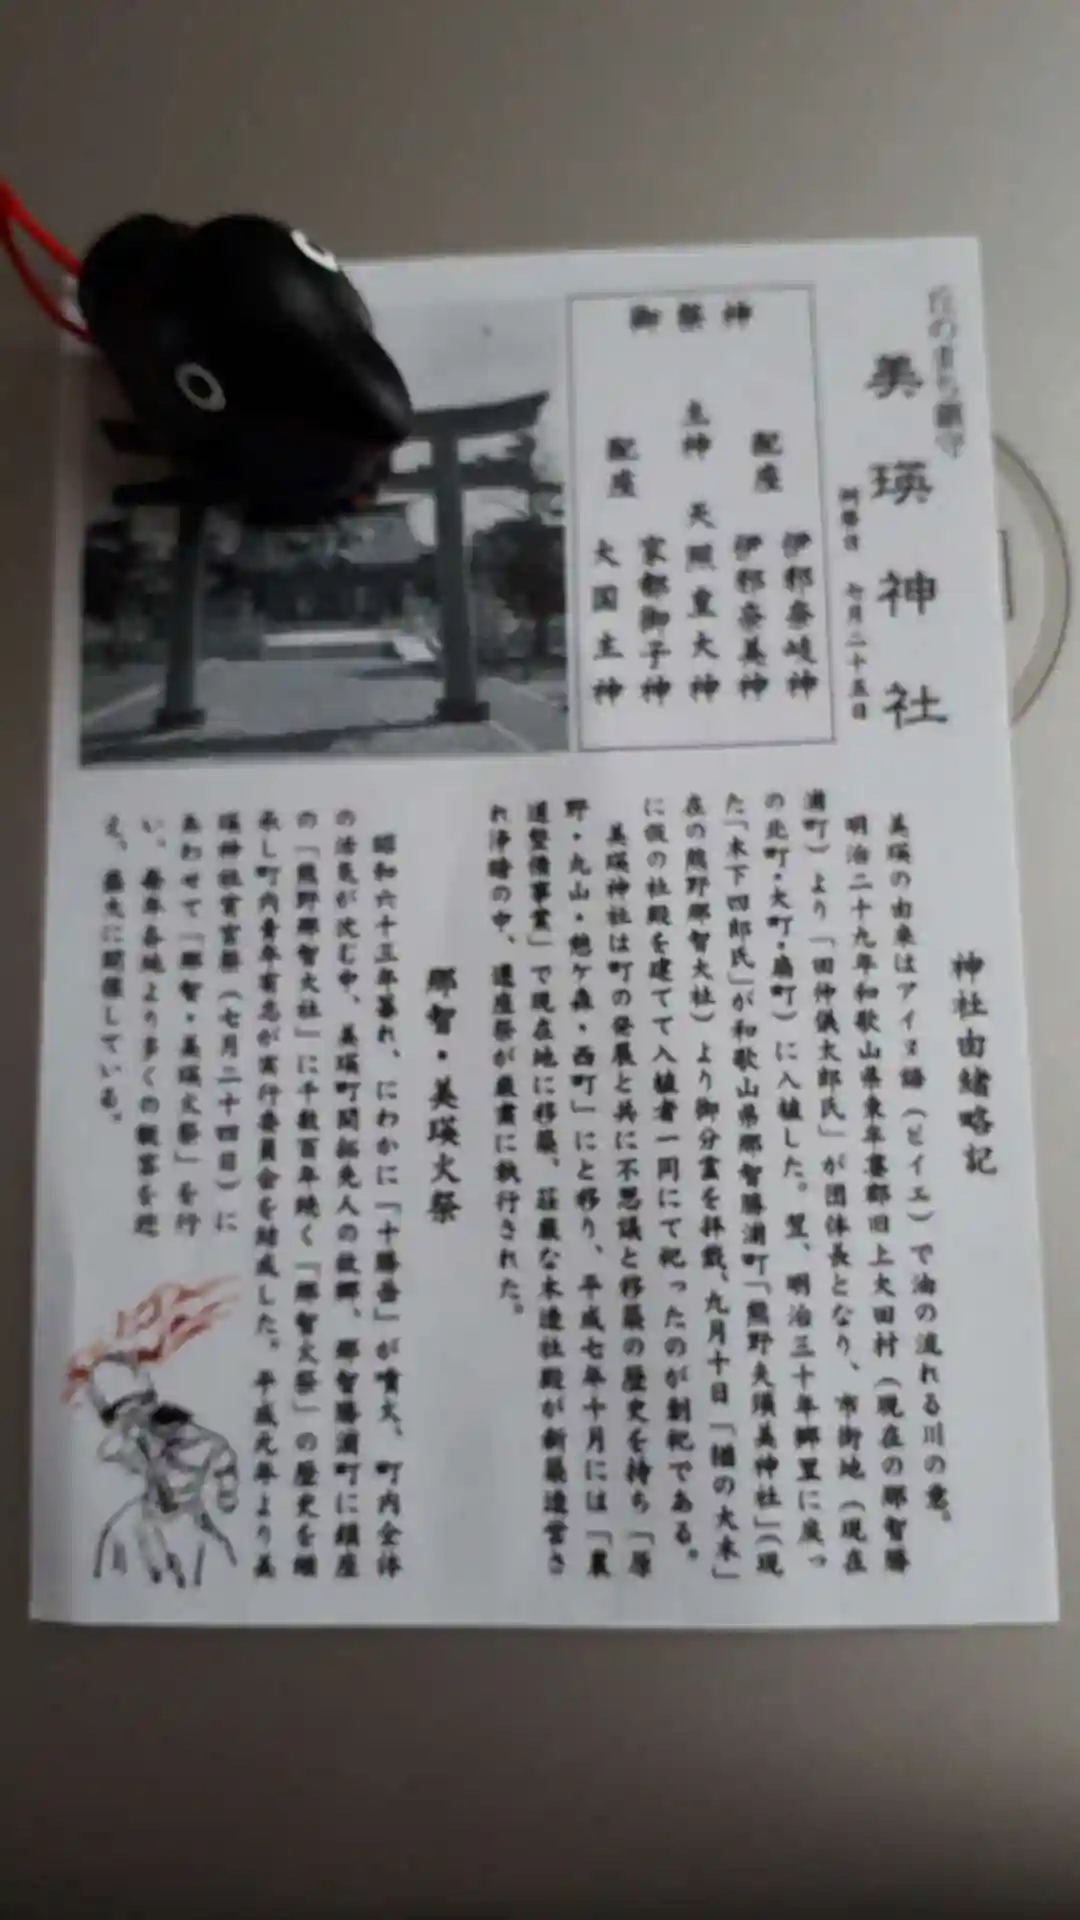 丘のまち鎮守
美瑛神社
例祭日 七月二十五日
御祭神
配座 伊邪奈岐神
伊邪奈美神
主神 天照皇大神
家都御子神
配座 大国主神
神社由緒略記
美瑛の由来はアイヌ語（ピイエ）で油の流れる川の意。
明治二十九年和歌山県東牟婁郡旧上太田村（現在の那智勝
浦町）より「田仲儀太郎氏」が団体長となり、市街地（現在
の北町・大町・扇町）に入植した。翌、明治三十年郷里に戻っ
た「木下四郎氏」が和歌山県那智勝浦町「熊野夫須美神社」（現
在の熊野那智大社）より御分霊を拝戴、九月十日「楢の大木」
に仮の社殿を建てて入植者一同にて祀ったのが創祀である。
美瑛神社は町の発展と共に不思議と移築の歴史を持ち「原
野・丸山・憩ケ森・西町」にと移り、平成七年十月には「農
道整備事業」で現在地に移築、荘厳な木造社殿が新築造営さ
れ浄暗の中、遷座祭が厳粛に執行された。
那智・美瑛火祭
昭和六十三年暮れ、にわかに「十勝岳」が噴火、町内全体
の活気が沈む中、美瑛町開拓先人の故郷、那智勝浦町に鎮座
の「熊野那智大社」に千数百年続く「那智火祭」の歴史を継
承し町内青年有志が実行委員会を結成した。平成元年より美
瑛神社宵宮祭（七月二十四日）に
あわせて「那智・美瑛火祭」を行
い、毎年各地より多くの観客を迎
え、盛大に開催している。